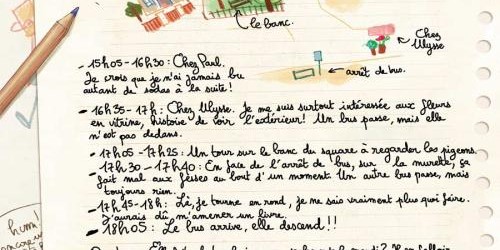 le banc.
Chez
Ulysse
arrêt de bus.
- 15h05-16h30 : Chez Parl.
Je crois que je n'ai jamais bu
autant de sodas à la suite !
- 16h35-17h : Chez Ulysse. Je me suis surtout intéressée aux fleurs
en vitrine, histoire de voir l'extérieur! Un bus passe, mais elle
n'est pas dedans.
- 17h05-17h25 : Un tour sur le banc du square à regarder les pigeons.
- 17h30-17h40 : En face de l'arrêt de bus, sur la murette, ça
fait mal aux fesses au bout d'un moment. Un autre bus passe, mais
toujours rien.
- 17h45-18h : Là, je tourne en rond, je ne sais vraiment plus quoi faire.
J'aurais dû m'amener un livre.
- 18h05 : Le bus arrive, elle descend !!
hum!